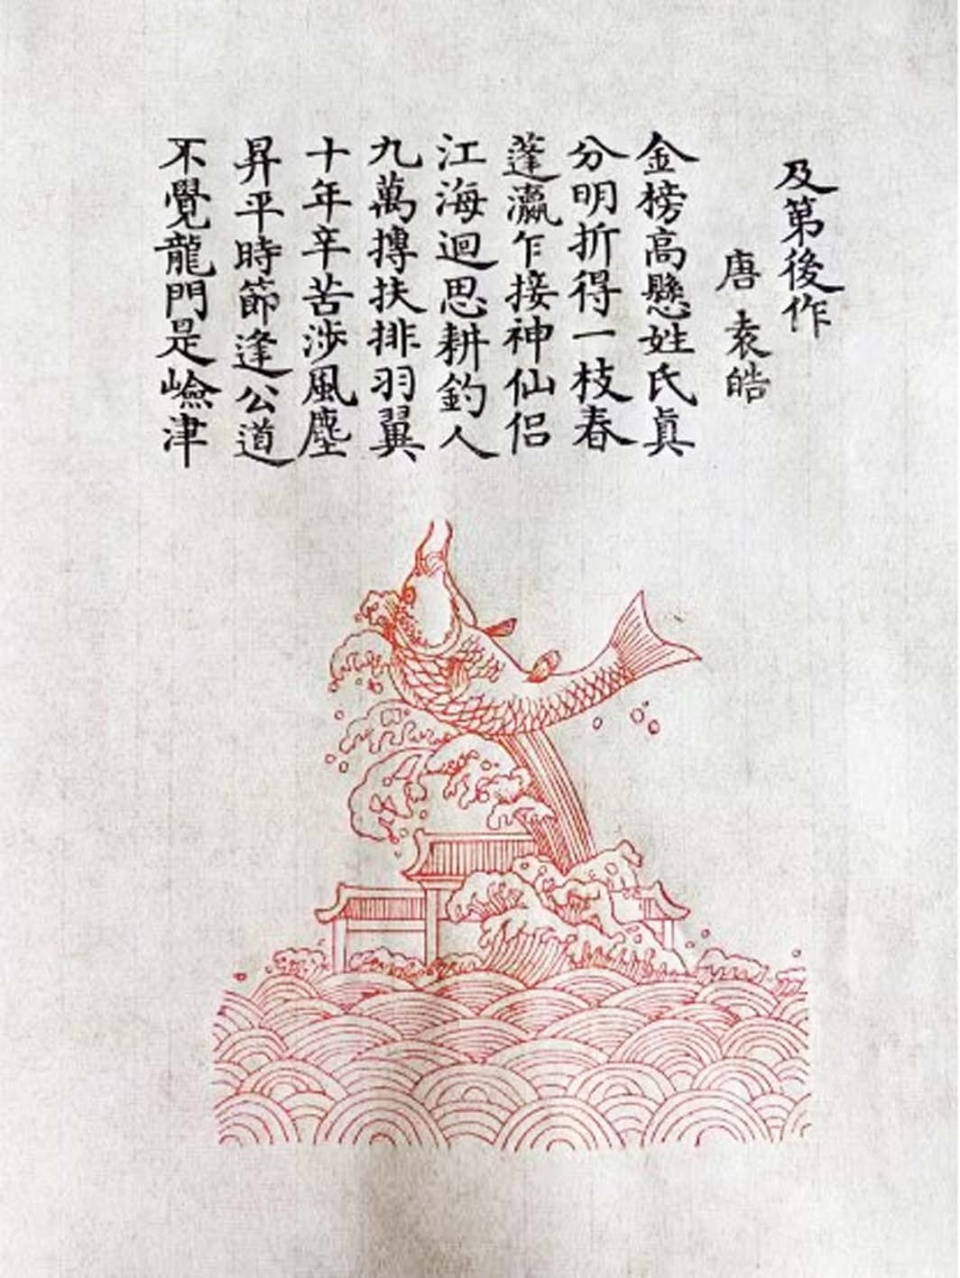 及第後作
唐 袁皓
金榜高懸姓氏真
分明折得一枝春
蓬瀛乍接神仙侶
江海迴思耕釣人
九萬摶扶排羽翼
十年辛苦涉風塵
昇平時節逢公道
不覺龍門是嶮津